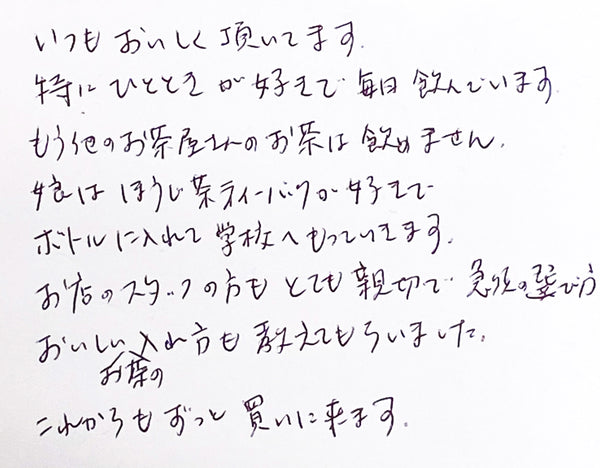 いつもおいしく頂いてます。
特にひとときが好きで毎日飲んでいます。
もう他のお茶屋さんのお茶は飲めません。
娘はほうじ茶ティーバッグが好きで
ボトルに入れて学校へもっていきます。
お店のスタッフの方もとても親切で急須の選び方
おいしいお茶の入れ方も教えてもらいました。
これからもずっと買いに来ます。